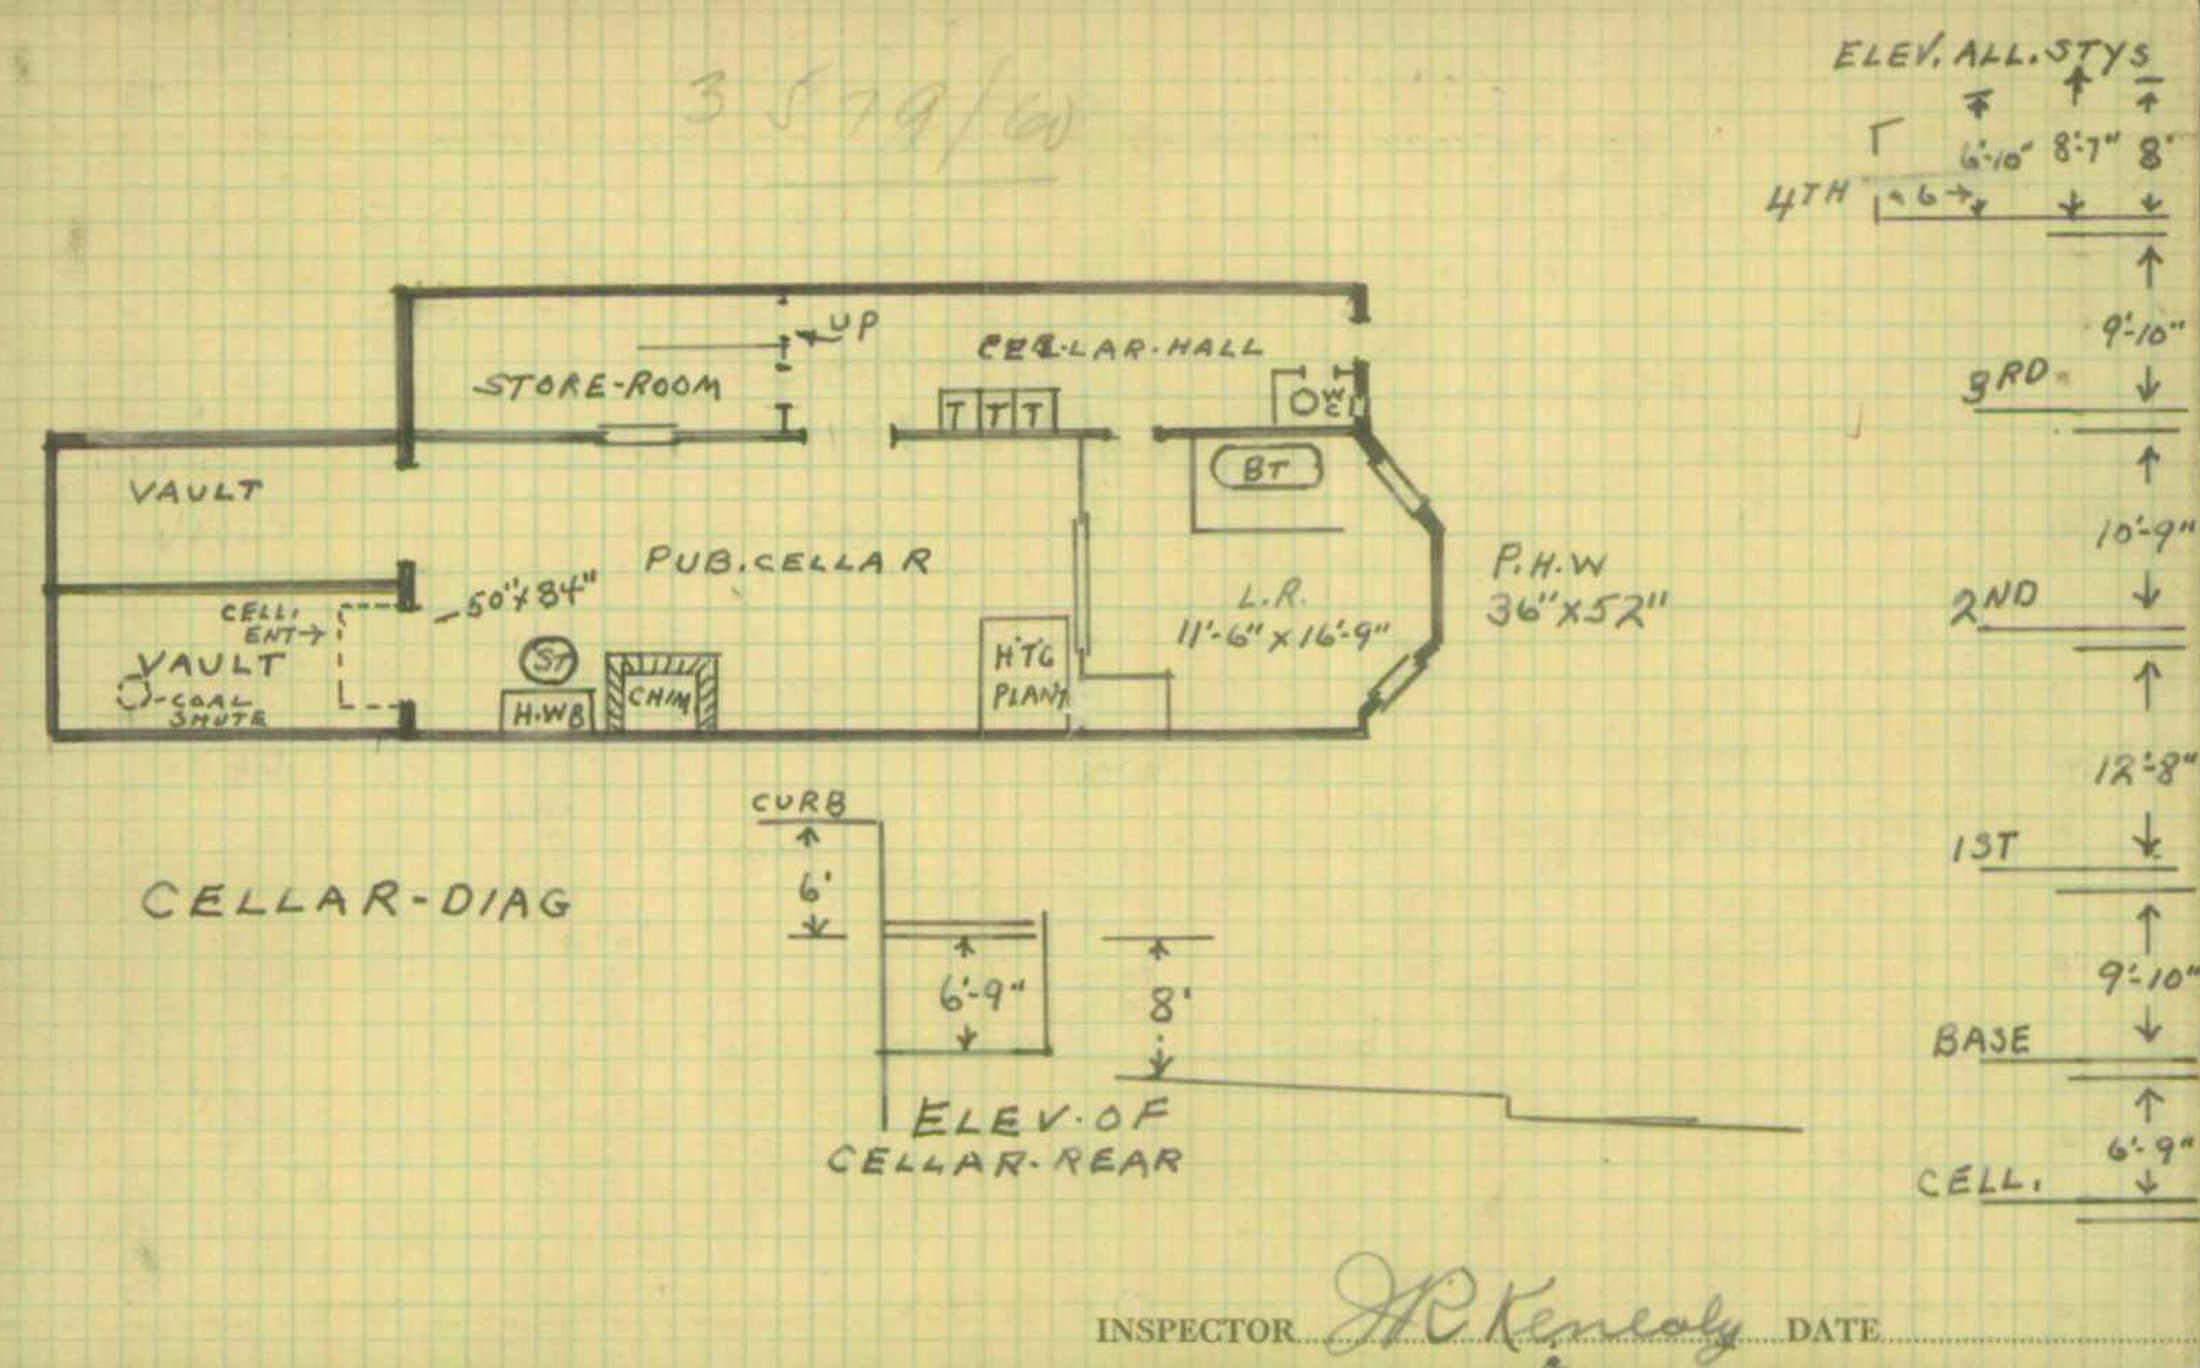 3579/60
ELEV. ALL. STYS
6'-10" 8'-7" 8'
4TH
6
9'-10"
3RD
10'-9"
2ND
12'-8"
1ST
9'-10"
BASE
6'-9"
CELL.
UP
CELLAR-HALL
STORE-ROOM
T T T
WC
VAULT
BT
PUB. CELLAR
50"X84"
CELL.
ENT
VAULT
COAL
SHUTE
ST
H.W.B
CHIM
HTG
PLANT
L.R.
11'-6" X 16'-9"
P.H.W
36"X52"
CURB
6'
CELLAR-DIAG
6'-9"
8'
ELEV. OF
CELLAR-REAR
INSPECTOR JR Kenealy DATE